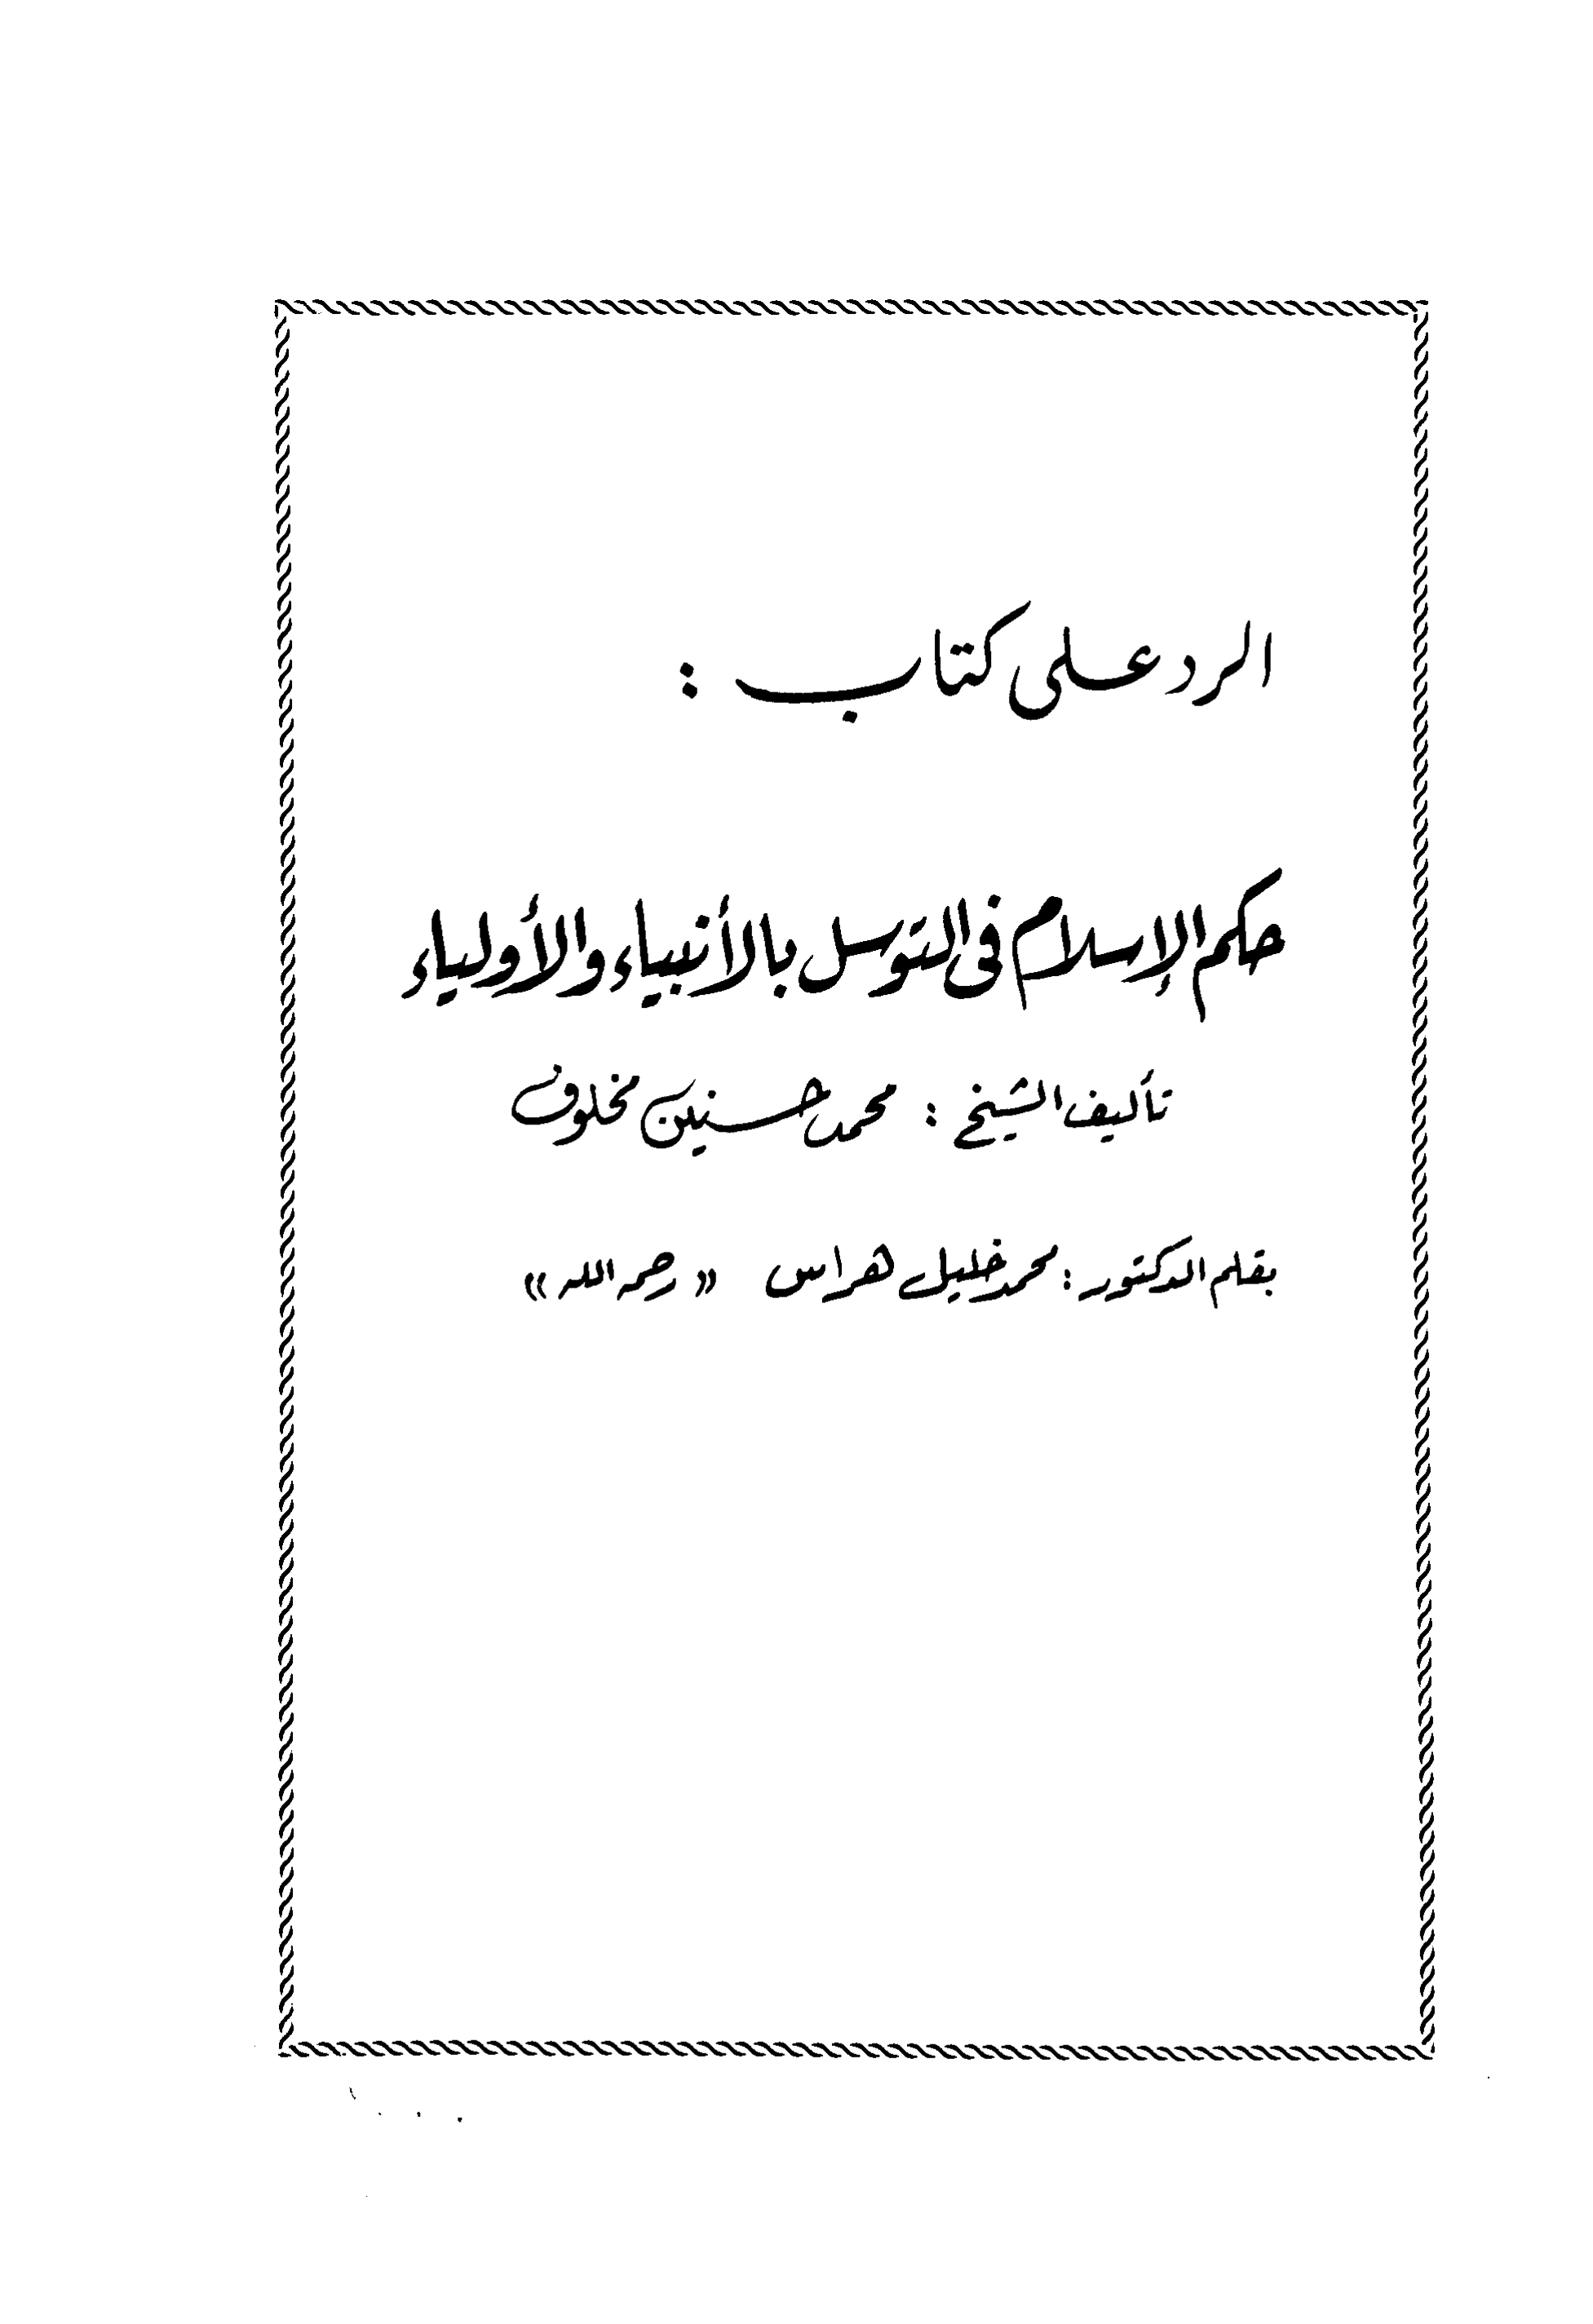 الرد على كتاب :
حكم الإسلام فى التوسل بالأنبياء والأولياء
تأليف الشيخ : محمد حسنين مخلوف
بقلم الدكتور : محمد خليل هراس « رحمه الله »